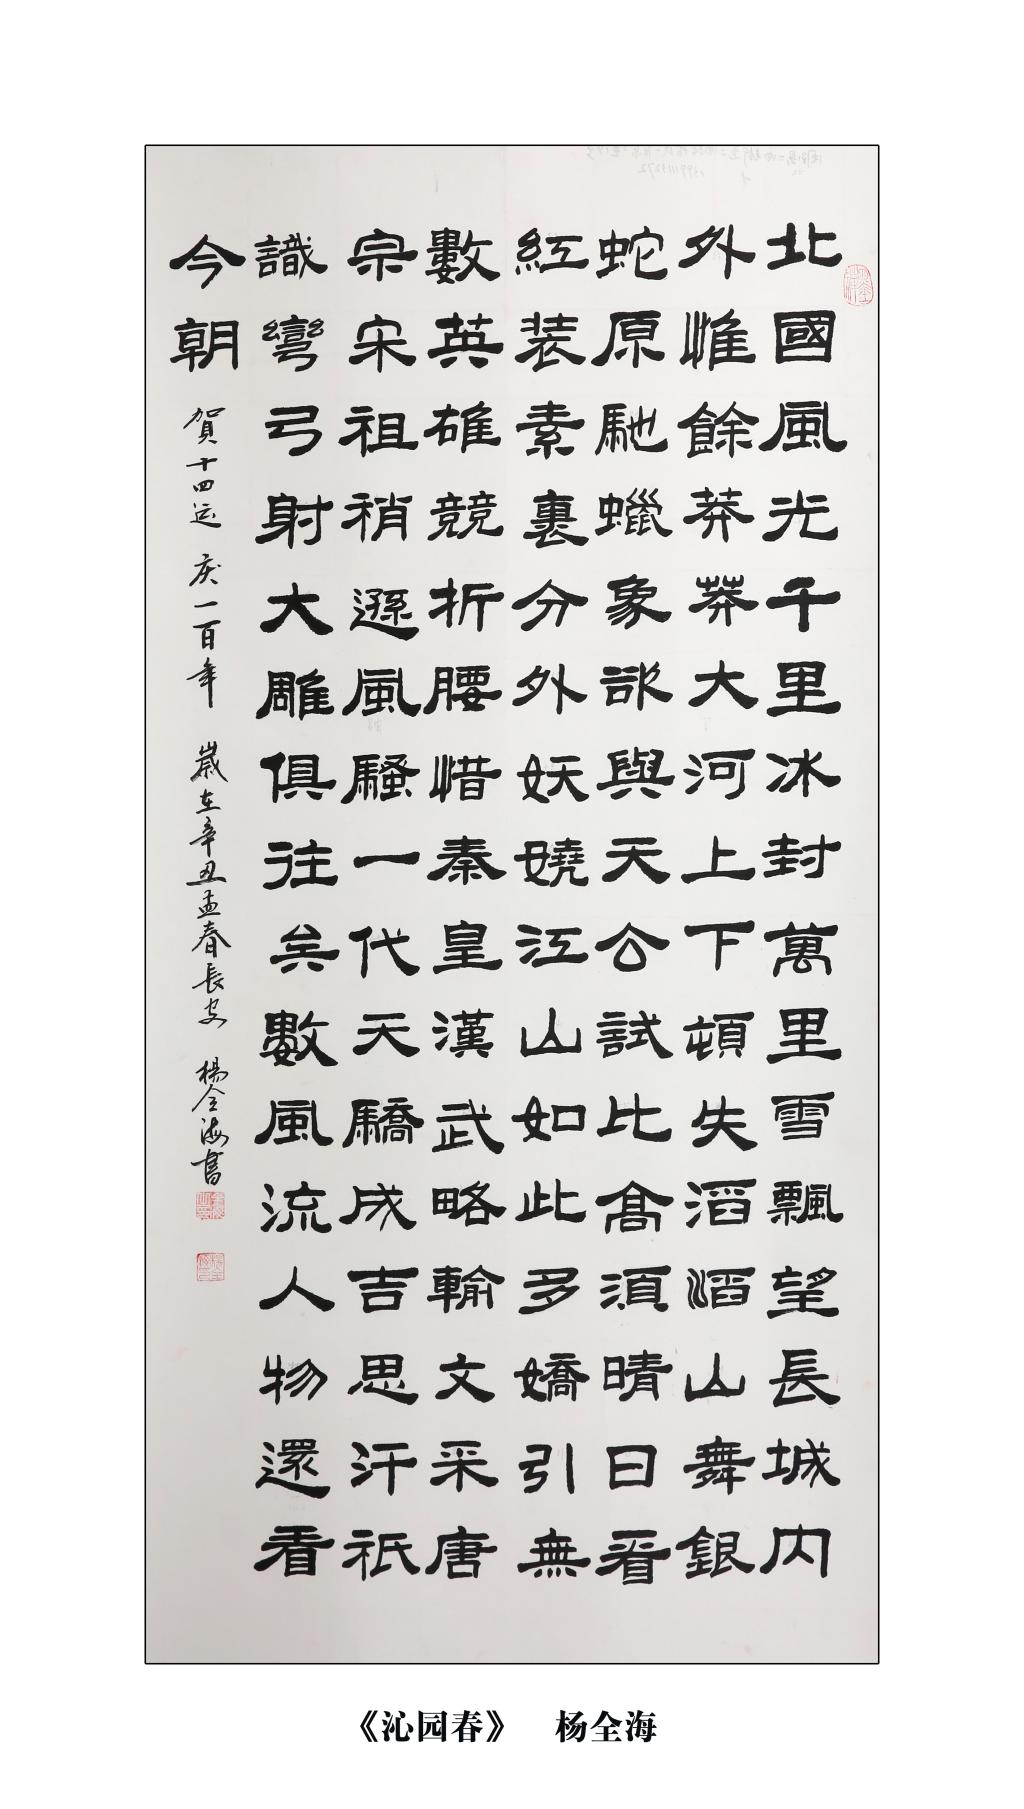 北國風光千里冰封萬里雪飄望長城内
外惟餘莽莽大河上下頓失滔滔山舞銀
蛇原馳蠟象欲與天公試比高須晴日看
紅装素裏分外妖嬈江山如此多嬌引無
數英雄競折腰惜秦皇漢武略輸文采唐
宗宋祖稍遜風騷一代天驕成吉思汗祇
識彎弓射大雕俱往矣數風流人物還看
今朝 賀十四运 庆一百年 歲在辛丑孟春長安 楊全海書
《沁园春》 杨全海